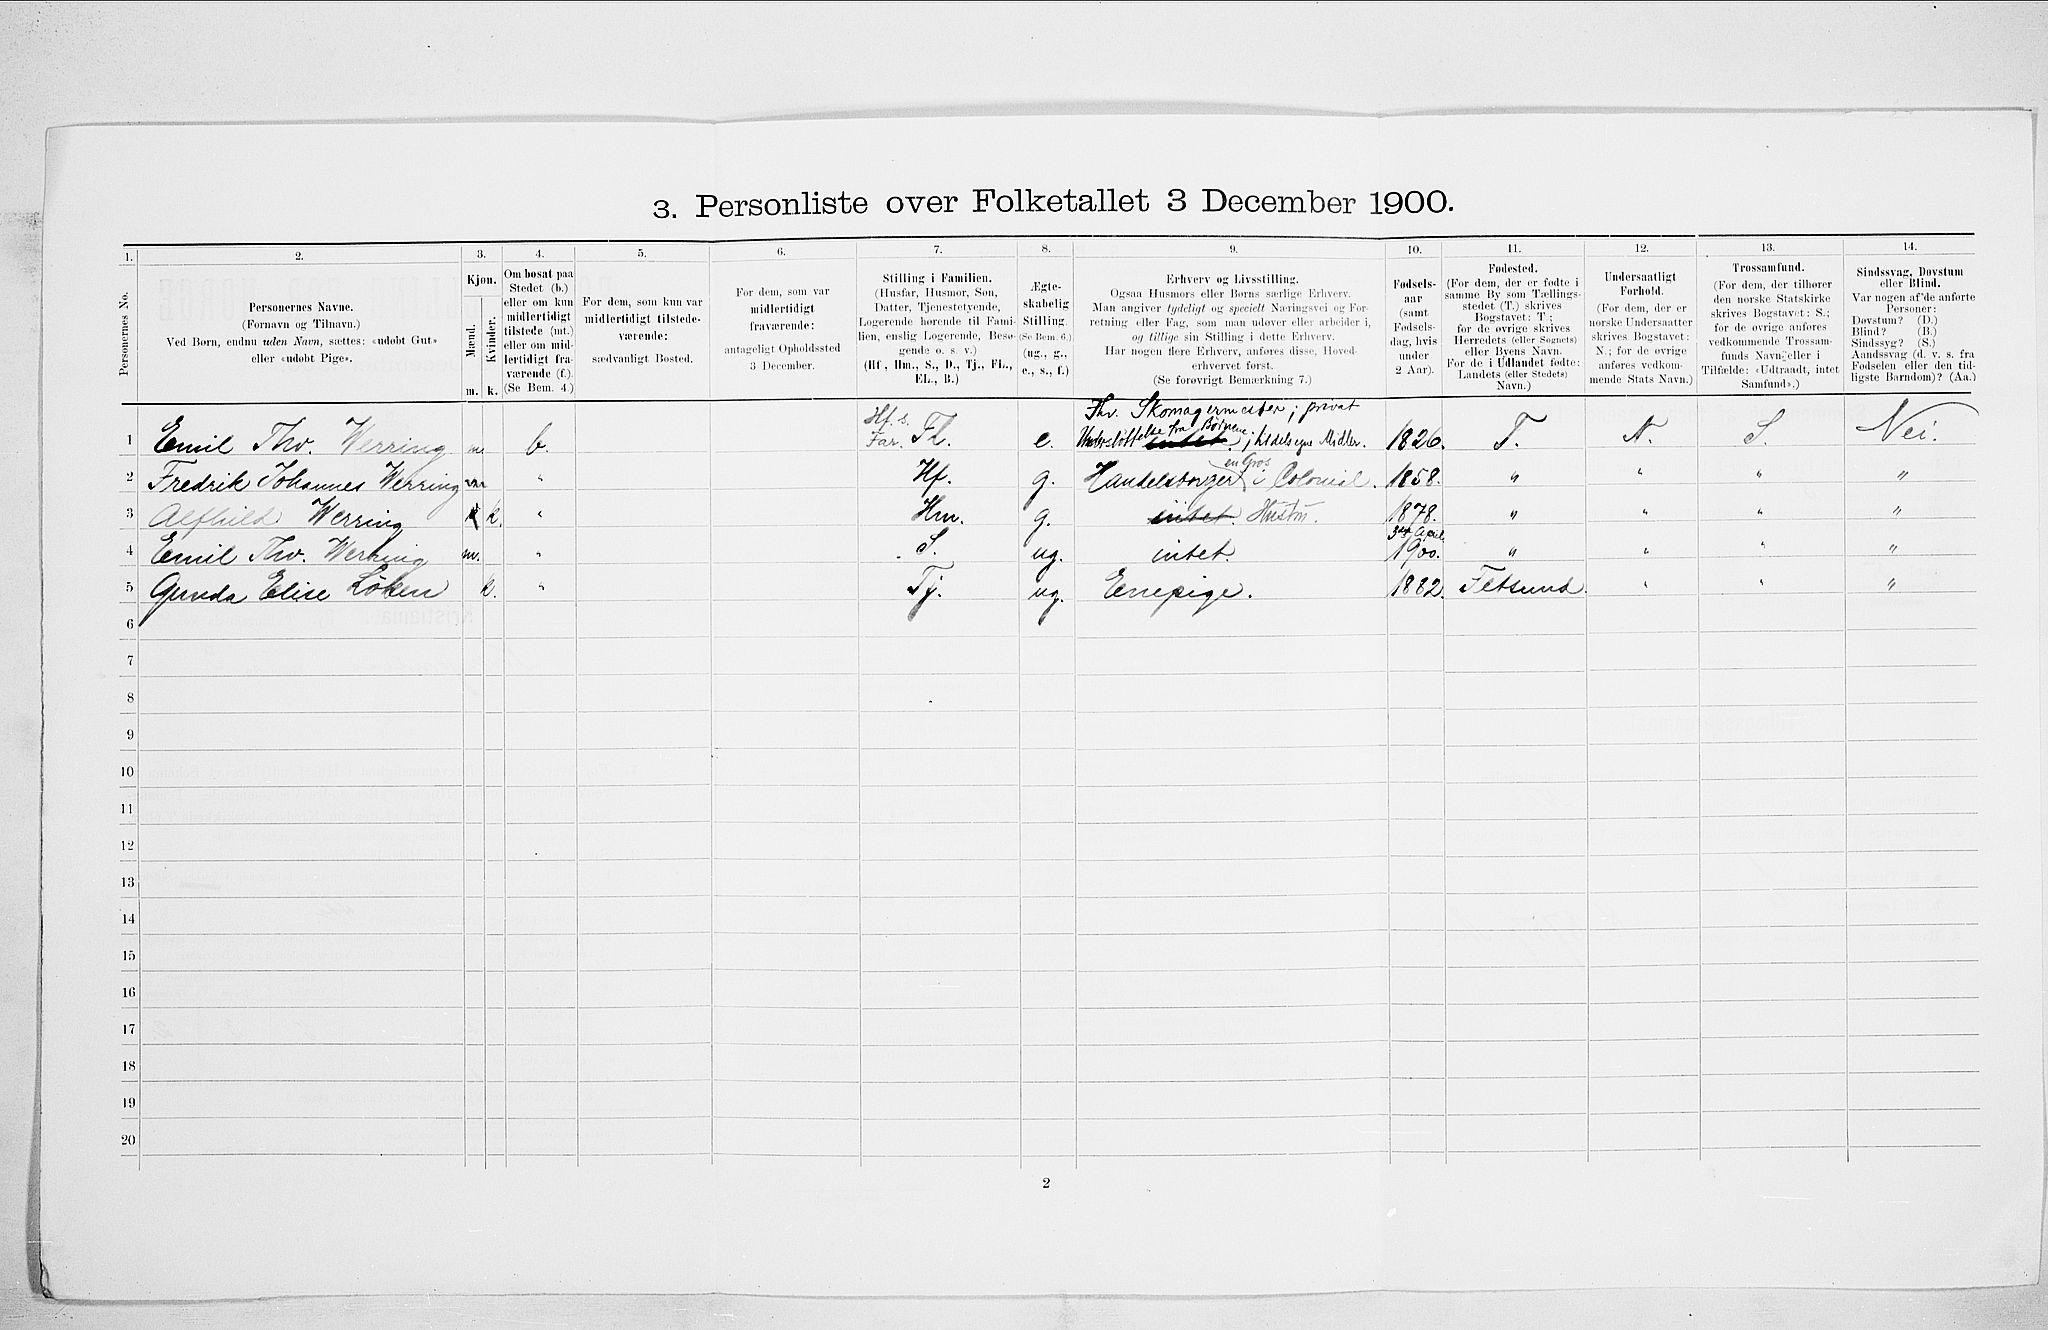 3. Personliste over Folketallet 3 December 1900.
1. 2. 3. 4. 5. 6. 7. 8. 9. 10. 11. 12. 13. 14.
Personernes No.
Personernes Navne.
(Fornavn og Tilnavn.)
Ved Børn, endnu uden Navn, sættes: «udøbt Gut»
eller «udøbt Pige».
Kjøn.
Mænd.
Kvinder.
m. k.
Om bosat paa
Stedet (b.)
eller om kun
midlertidigt
tilstede (mt.)
eller om mid-
lertidigt fra-
værende (f.).
(Se Bem. 4.)
For dem, som kun var
midlertidigt tilstede-
værende:
sædvanligt Bosted.
For dem, som var
midlertidigt
fraværende:
antageligt Opholdssted
3 December.
Stilling i Familien.
(Husfar, Husmor, Søn,
Datter, Tjenestetyende,
Logerende hørende til Fami-
lien, enslig Logerende, Besø-
gende o. s. v.)
(Hf., Hm., S., D., Tj., FL.,
EL., B.)
Ægte-
skabelig
Stilling.
(Se Bem. 6.)
(ug., g.,
e., s., f.)
Erhverv og Livsstilling.
Ogsaa Husmors eller Børns særlige Erhverv.
Man angiver tydeligt og specielt Næringsvei og For-
retning eller Fag, som man udøver eller arbeider i,
og tillige sin Stilling i dette Erhverv.
Har nogen flere Erhverv, anføres disse, Hoved-
erhvervet først.
(Se forøvrigt Bemærkning 7.)
Fødsels-
aar
(samt
Fødsels-
dag, hvis
under
2 Aar).
Fødested.
(For dem, der er fødte i
samme By som Tællings-
stedet (T.) skrives
Bogstavet: T;
for de øvrige skrives
Herredets (eller Sognets)
eller Byens Navn.
For de i Udlandet fødte:
Landets (eller Stedets)
Navn.)
Undersaatligt
Forhold.
(For dem, der er
norske Undersaatter
skrives Bogstavet:
N.; for de øvrige
anføres vedkom-
mende Stats Navn.)
Trossamfund.
(For dem, der tilhører
den norske Statskirke
skrives Bogstavet: S.;
for de øvrige anføres
vedkommende Trossam-
funds Navn, eller i
Tilfælde: «Udtraadt, intet
Samfund».)
Sindssvag, Døvstum
eller Blind.
Var nogen af de anførte
Personer:
Døvstum? (D.)
Blind? (B.)
Sindssyg? (S.)
Aandssvag (d. v. s. fra
Fødselen eller den tid-
ligste Barndom)? (Aa.)
Hf.s. Fhv. Skomagermester; privat
1 Emil Thv. Werring m. b. Far. Fl. e. Understøttelse fra Børnene; tildels egne Midler. 1826. T. N. S. Nei.
en Gros
2 Fredrik Johannes Werring m " Hf. g. Handelsborger i Colonial. 1858. " " " "
3 Alfhild Werring k. " Hm. g. intet. Hustru. 1878. " " " "
3die April
4 Emil Thv. Werring m. " S. ug. intet. 1900. " " " "
5 Gunda Elise Löken k. " Tj. ug. Enepige. 1882. Fetsund. " " "
6
7
8
9
10
11
12
13
14
15
16
17
18
19
20
2